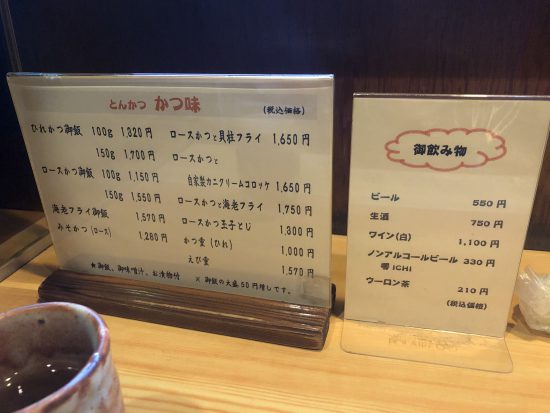 とんかつ かつ味
(税込価格)
ひれかつ御飯 100g 1,320 円
150g 1,700 円
ロースかつ御飯 100g 1,150 円
150g 1,550 円
海老フライ御飯 1,570 円
みそかつ (ロース) 1,280 円
ロースかつと貝柱フライ 1,650 円
ロースかつと
自家製カニクリームコロッケ 1,650 円
ロースかつと海老フライ 1,750 円
ロースかつ玉子とじ 1,300 円
かつ重 (ひれ) 1,000 円
えび重 1,570 円
★御飯、御味噌汁、お漬物付 ※ 御飯の大盛50円増しです。
御飲み物
ビール 550 円
生酒 750 円
ワイン(白) 1,100 円
ノンアルコールビール 330 円
零 ICHI
ウーロン茶 210 円
(税込価格)